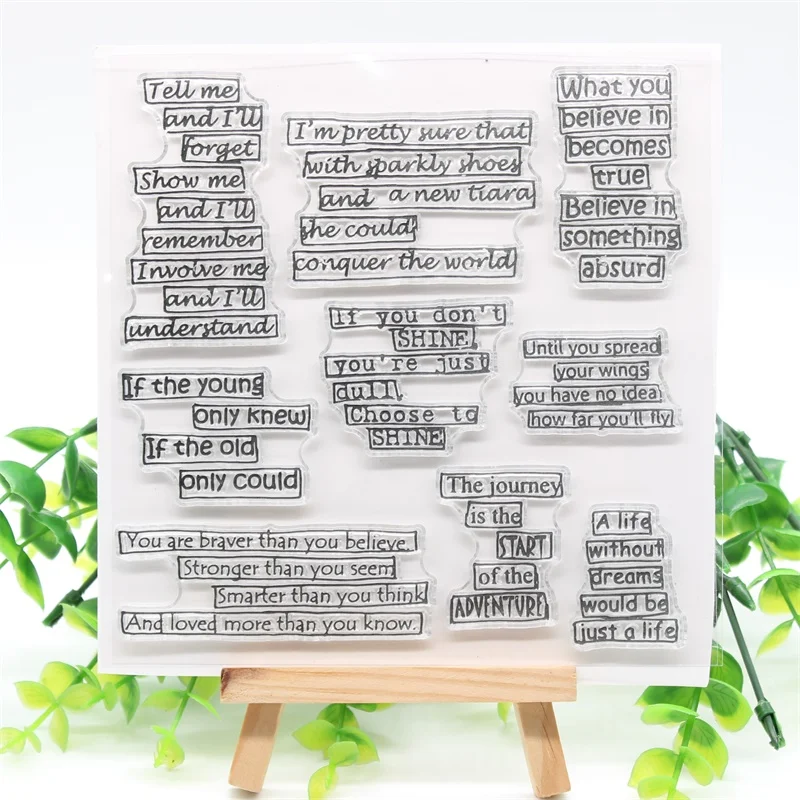 Tell me
and I'll
forget
Show me
and I'll
remember
Involve me
and I'll
understand
I'm pretty sure that
with sparkly shoes
and a new tiara
she could
conquer the world
What you
believe in
becomes
true
Believe in
something
absurd
If you don't
SHINE,
you're just
dull.
Choose to
SHINE
Until you spread
your wings
you have no idea
how far you'll fly
If the young
only knew
If the old
only could
The journey
is the
START
of the
ADVENTURE
A life
without
dreams
would be
just a life
You are braver than you believe.
Stronger than you seem
Smarter than you think
And loved more than you know.